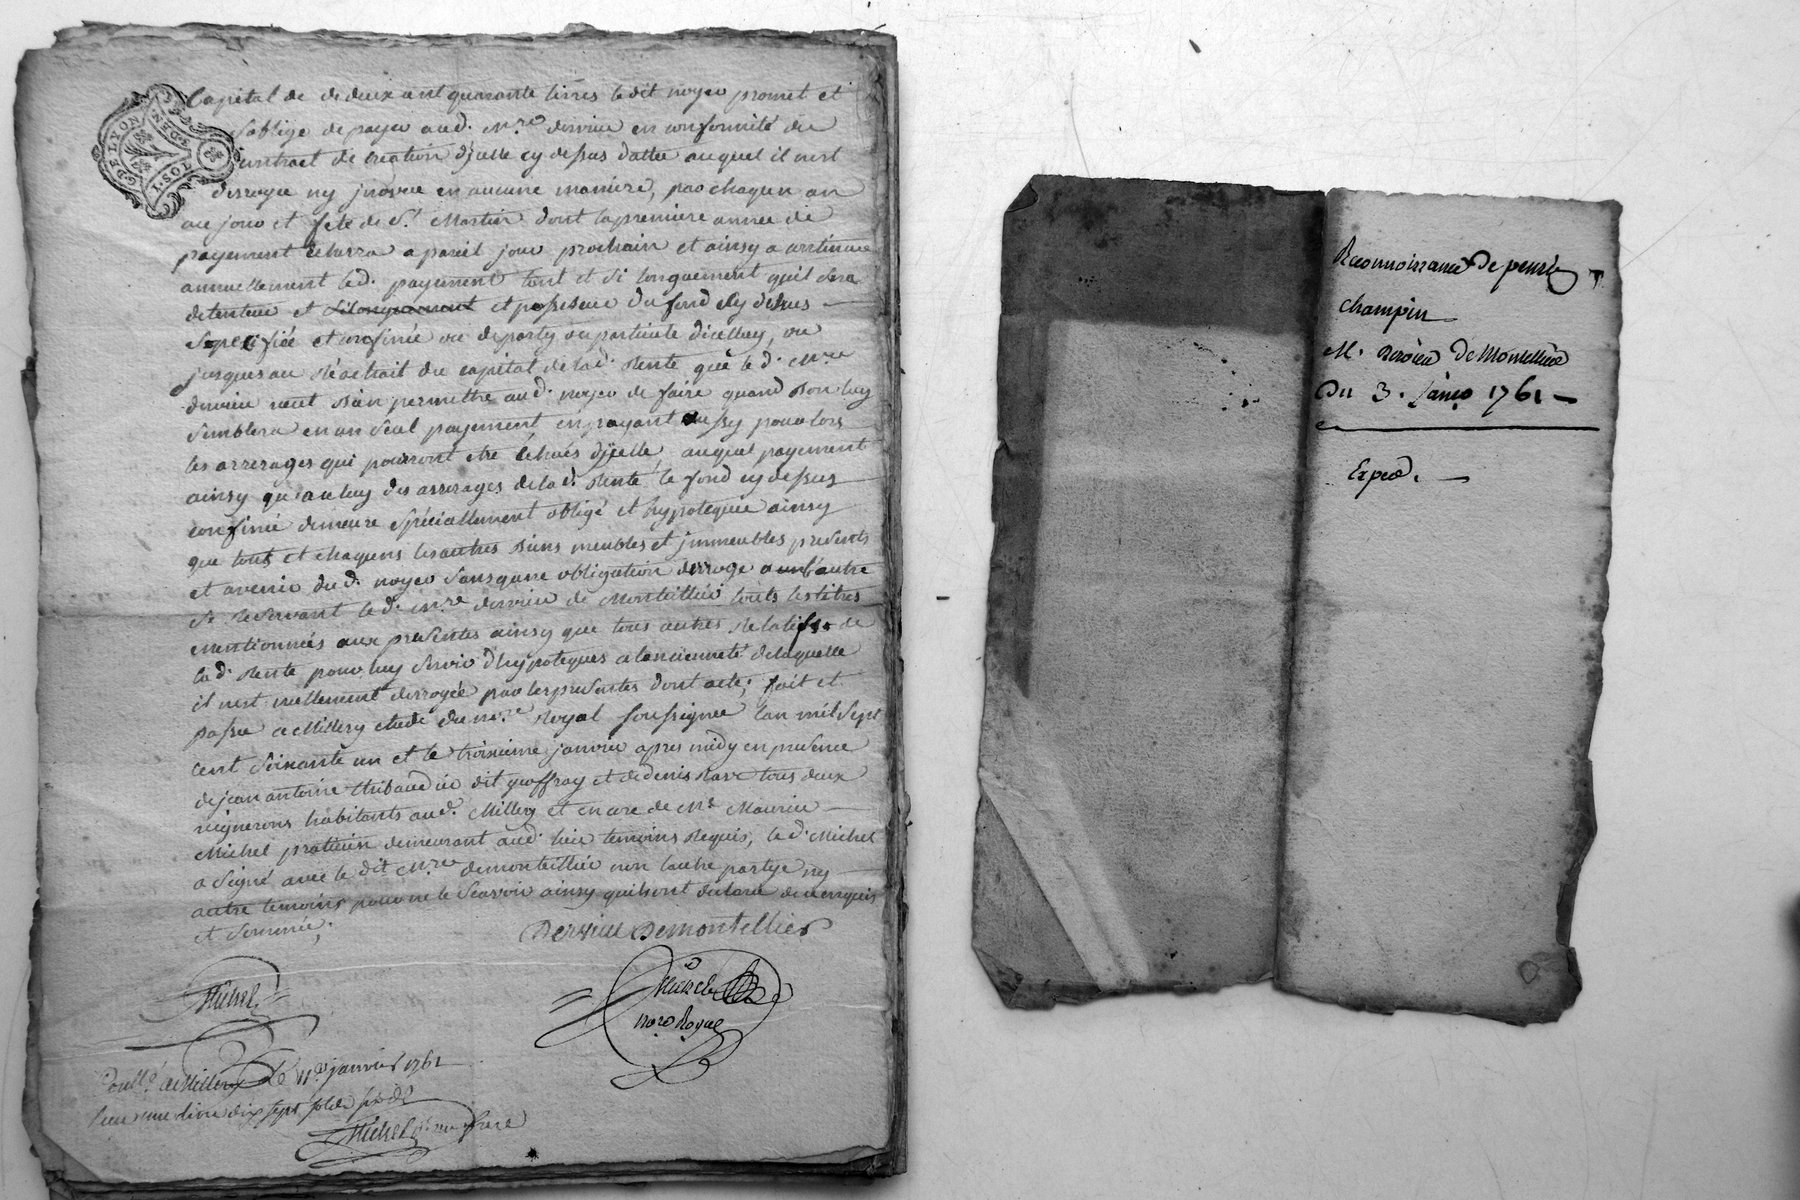 Capital de de deux cent quarante livres le dit noyer promet et
s'oblige de payer aud. m.re dervieu en conformité du
contract de creation d'jcelle cy dessus datté auquel il n'est
derrogé ny jnnové en aucune maniere, par chaqun an
au jour et fete de S.t Martin dont la premiere année de
payement echerra a pareil jour prochain et ainsy a continuer
annuellement led. payement tant et si longuement qu'il sera
detenteur et silonguement et possesseur du fond cy dessus
specifiée et confinée ou de party ou particule d'icelluy, ou
jusques au réachait du capital de lad. rente que le d. m.re
dervieu veut bien permettre aud. noyer de faire quand bon luy
semblera en un seul payement, en payant aussy pour lors
les arrerages qui pourront etre echues d'jcelle, auquel payement
ainsy qu'a celuy des arrerages de lad. rente le fond cy dessus
confiné demeure spéciallement obligé et hypotequée ainsy
que touts et chaquns les autres biens meubles et jmmeubles presents
et avenir dud. noyer sans qu'une obligation derroge a l'autre
se reservant led. m.re dervieu de Monteillier touts les titres
mentionnés aux presentes ainsy que tous autres relatifs de
lad. rente pour luy servir d'hypoteques a l'ancienneté de laquelle
il n'est nullement derrogée par les presentes dont acte; fait et
passé a Millery etude du no.re Royal soussignée l'an mil sept
cent soixante un et le troisieme janvier apres midy en presence
de jean antoine thibaudier dit geoffray et de denis rave tous deux
vignerons habitants aud. Millery et encore de M.e Maurice
Michel praticien demeurant aud. lieu temoins requis, le d. Michel
a signé avec le dit M.re demonteillier non l'autre partye ny
autre temoins pour ne le sçavoir ainsy qu'ils ont declaré de ce enquis
et sommée;
Dervieu Demontellier
Michel
Michel
no.re Royal
Conll.é a Millery Le 11.e janvier 1761
Reçu une livre dix sept sols six d.
Michel
Reconnoissance de pension
champin
M. Dervieu de Montellier
Du 3. Janv. 1761
Exped.
G. DE LYON